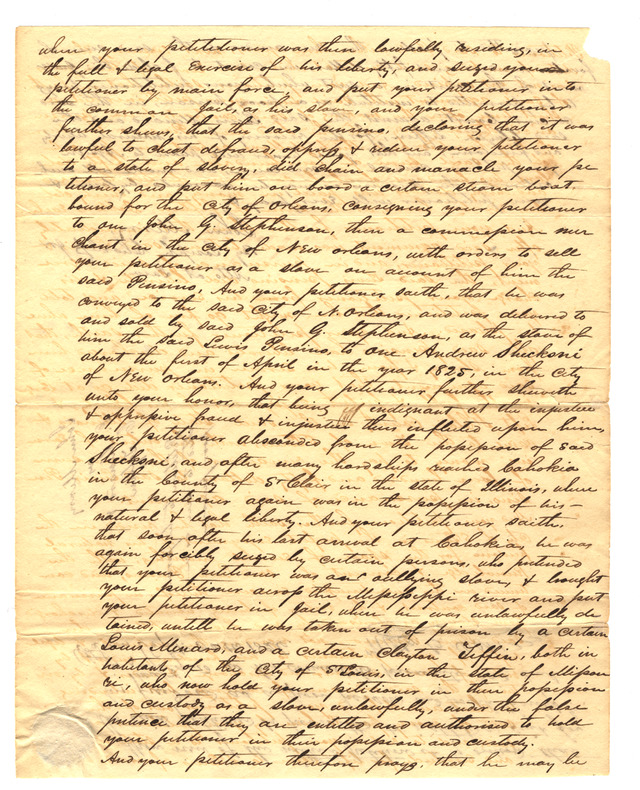 when your petitioner was then lawfully residing, in
the full & legal exercise of his liberty, and seized your
petitioner by main force, and put your petitioner into
the common jail, as his slave, and your petitioner
further shews, that the said pensino, declaring that it was
lawful to cheat defraud, oppress & reduce your petitioner
to a state of slavery, did chain and manacle your pe
titioner, and put him on board a certain steam boat
bound for the City of Orleans, consigning your petitioner
to one John G. Stephenson, then a commission mer
chant in the City of New Orleans, with orders to sell
your petitioner as a slave on account of him the
said Pensino, And your petitioner saith, that he was
conveyed to the said City of N. Orleans, and was delivered to
and sold by said John G. Stephenson, as the slave of
him the said Lewis Pensino, to one Andrew Shecksni
about the first of April in the year 1825, in the City
of New Orleans. And your petitioner further sheweth
unto your honor, that being indignant at the injustice
& oppression fraud & injustice thus inflicted upon him,
your petitioner absconded from the possession of said
Shecksni, and after many hardships reached Cahokia
in the County of St Clair in the state of Illinois, where
your petitioner again was in the possession of his –
natural & legal liberty. And your petitioner saith,
that soon after his last arrival at Cahokia, he was
again forcibly seized by certain persons, who pretended
that your petitioner was a slave, & brought
your petitioner across the Mississippi river and put
your petitioner in Jail, where he was unlawfully de
tained, untill he was taken out of prison by a certain
Louis Menard, and a certain Clayton Tiffin, both in
habitants of the City of St Louis, in the state of Missou
ri, who now hold your petitioner in their possession
and custody as a slave, unlawfully, under the false
pretence that they are entitled and authorised to hold
your petitioner in their possession and custody.
And your petitioner therefore prays, that he may be